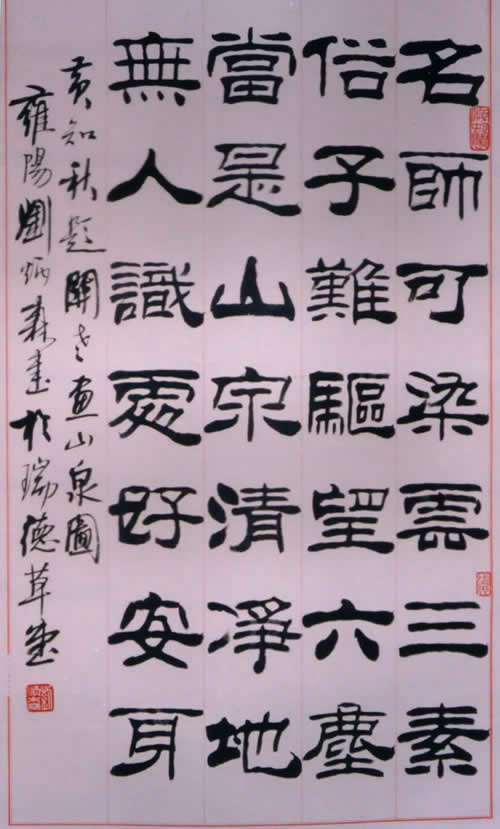 名師可染雲三素
俗子難驅望六塵
當是山泉清淨地
無人識處好安身
黄知秋題關老畫山泉圖
雍陽劉炳森書於瑞德草堂